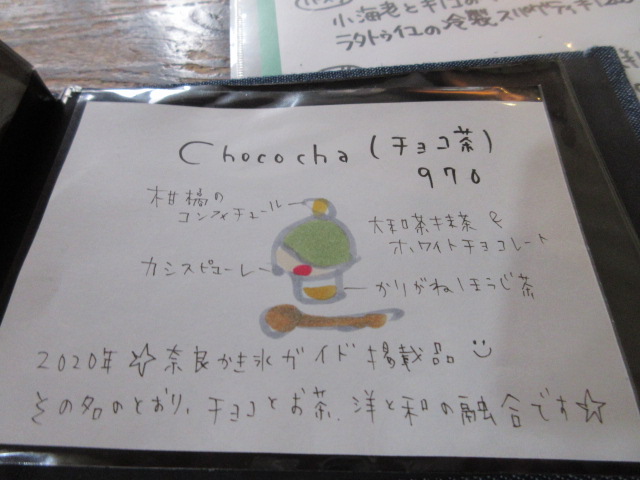 小海老とキノコの
ラタトゥイユの冷製スパゲティ
Chococha (チョコ茶)
970
柑橘の
コンフィチュール
大和茶抹茶&
ホワイトチョコレート
カシスピューレ
かりがねほうじ茶
2020年☆奈良かき氷ガイド掲載品
その名のとおり、チョコとお茶、洋と和の融合です☆